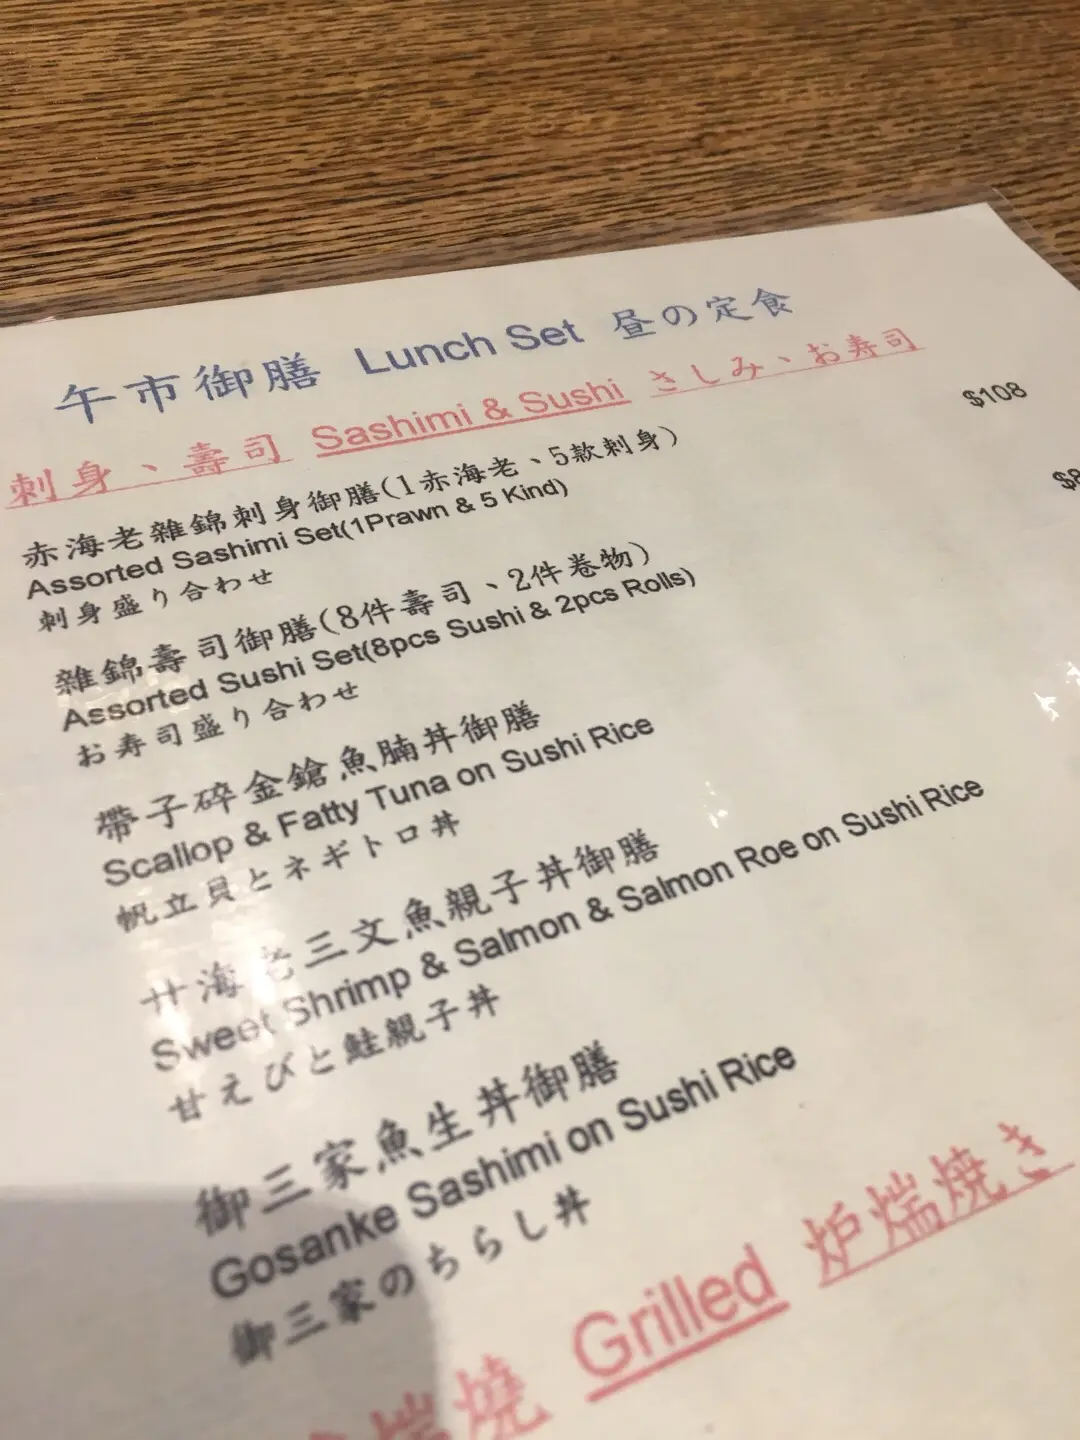 午市御膳 Lunch Set 昼の定食
刺身、壽司 Sashimi & Sushi さしみ、お寿司
赤海老雜錦刺身御膳(1赤海老、5款刺身) $108
Assorted Sashimi Set(1Prawn & 5 Kind)
刺身盛り合わせ
雜錦壽司御膳(8件壽司、2件卷物)
Assorted Sushi Set(8pcs Sushi & 2pcs Rolls)
お寿司盛り合わせ
帶子碎金鎗魚腩丼御膳
Scallop & Fatty Tuna on Sushi Rice
帆立貝とネギトロ丼
海老三文魚親子丼御膳
Sweet Shrimp & Salmon & Salmon Roe on Sushi Rice
甘えびと鮭親子丼
御三家魚生丼御膳
Gosanke Sashimi on Sushi Rice
御三家のちらし丼
燒 Grilled 炉端焼き